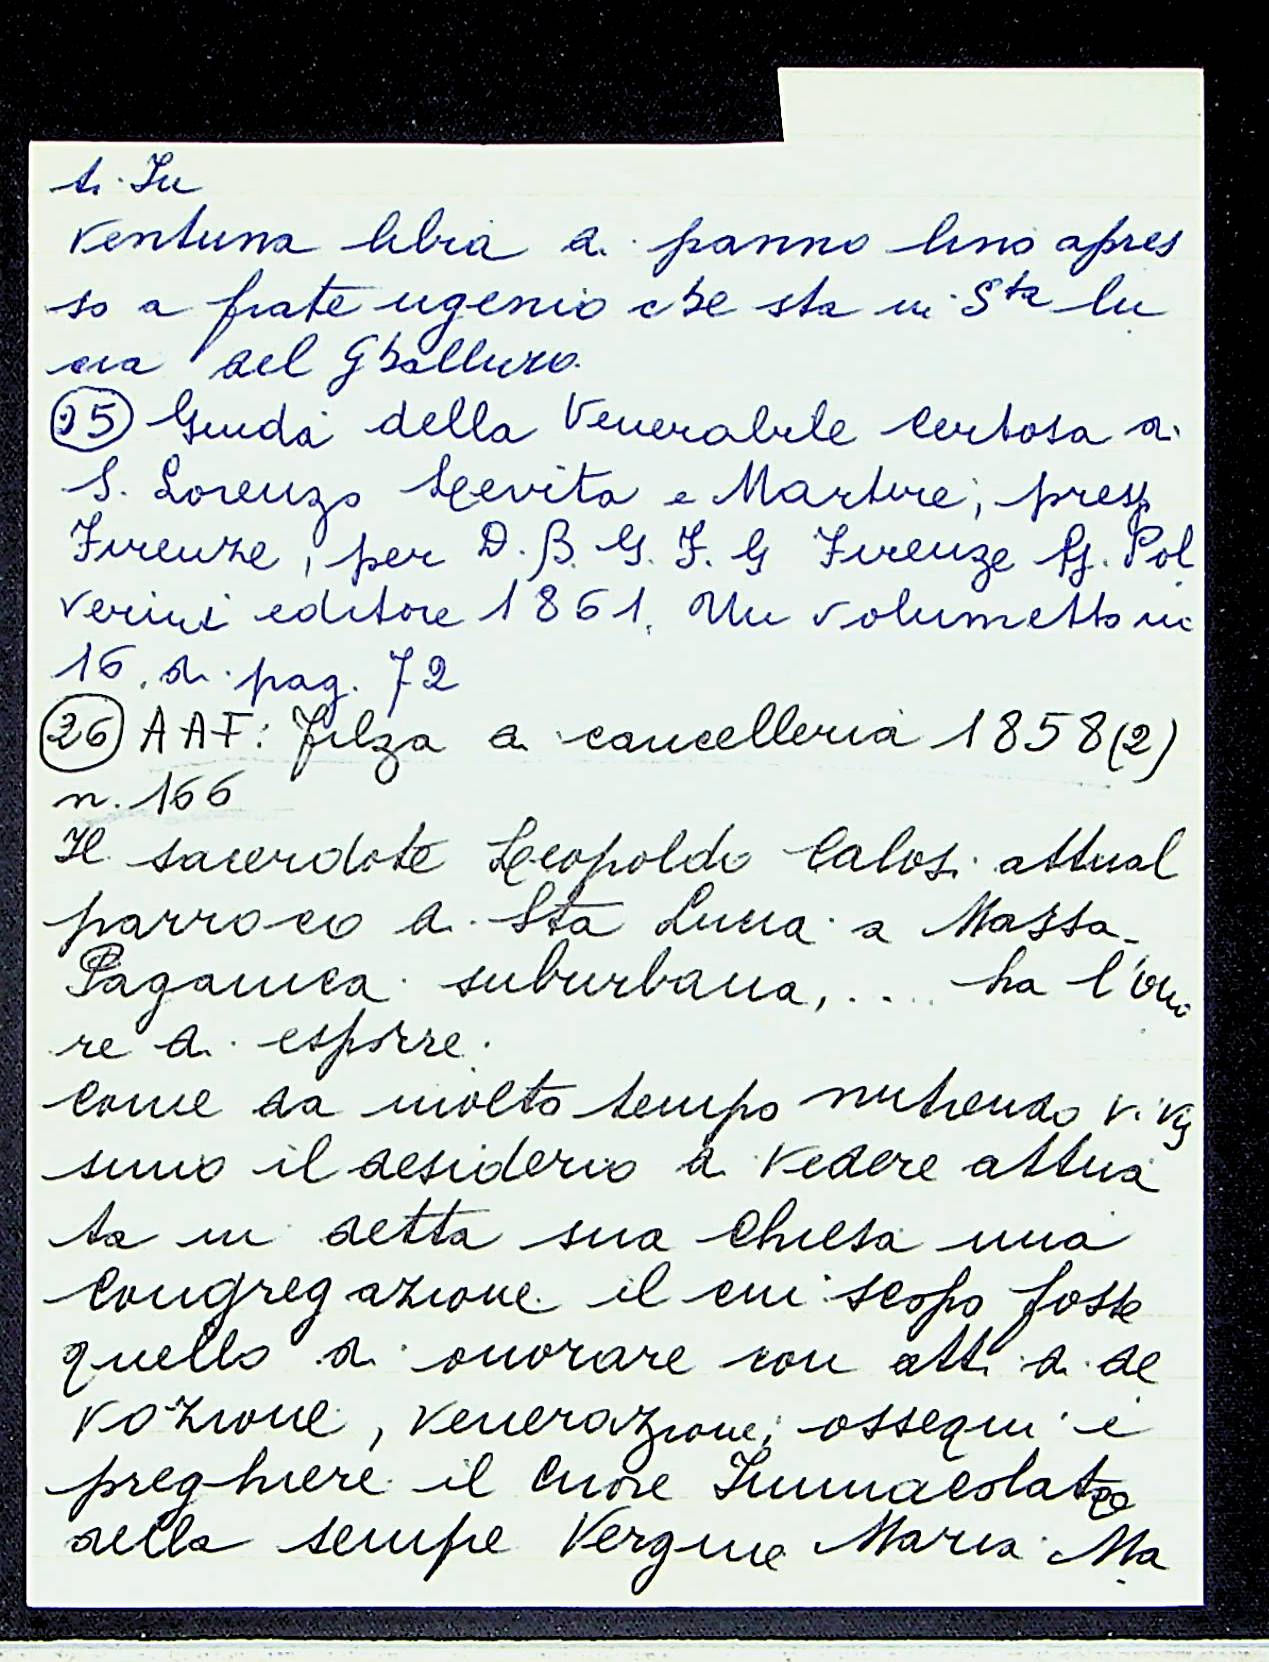 ti. In
ventuna libra di panno lino apres
so a frate ugenio che sta in Sta lu
cia del Ghalluzo.
25 Guida della Venerabile Certosa di
S. Lorenzo Levita e Martire, press
Firenze, per D. B. G. F. G Firenze G. Pol
verini editore 1861. Un volumetto in
16. di pag. 72
26 AAF: Filza di cancelleria 1858 (2)
n. 166
Il sacerdote Leopoldo Calosi attual
parroco di Sta Lucia a Massa-
Paganica suburbana, .... ha l'ono
re di esporre.
Come da molto tempo nutrendo vivis
simo il desiderio di vedere attua
ta in detta sua Chiesa una
Congregazione il cui scopo fosse
quello di onorare con atti di de
vozione, venerazione, ossequi e
preghiere il Cuore Immacolato
della sempe Vergine Maria Ma